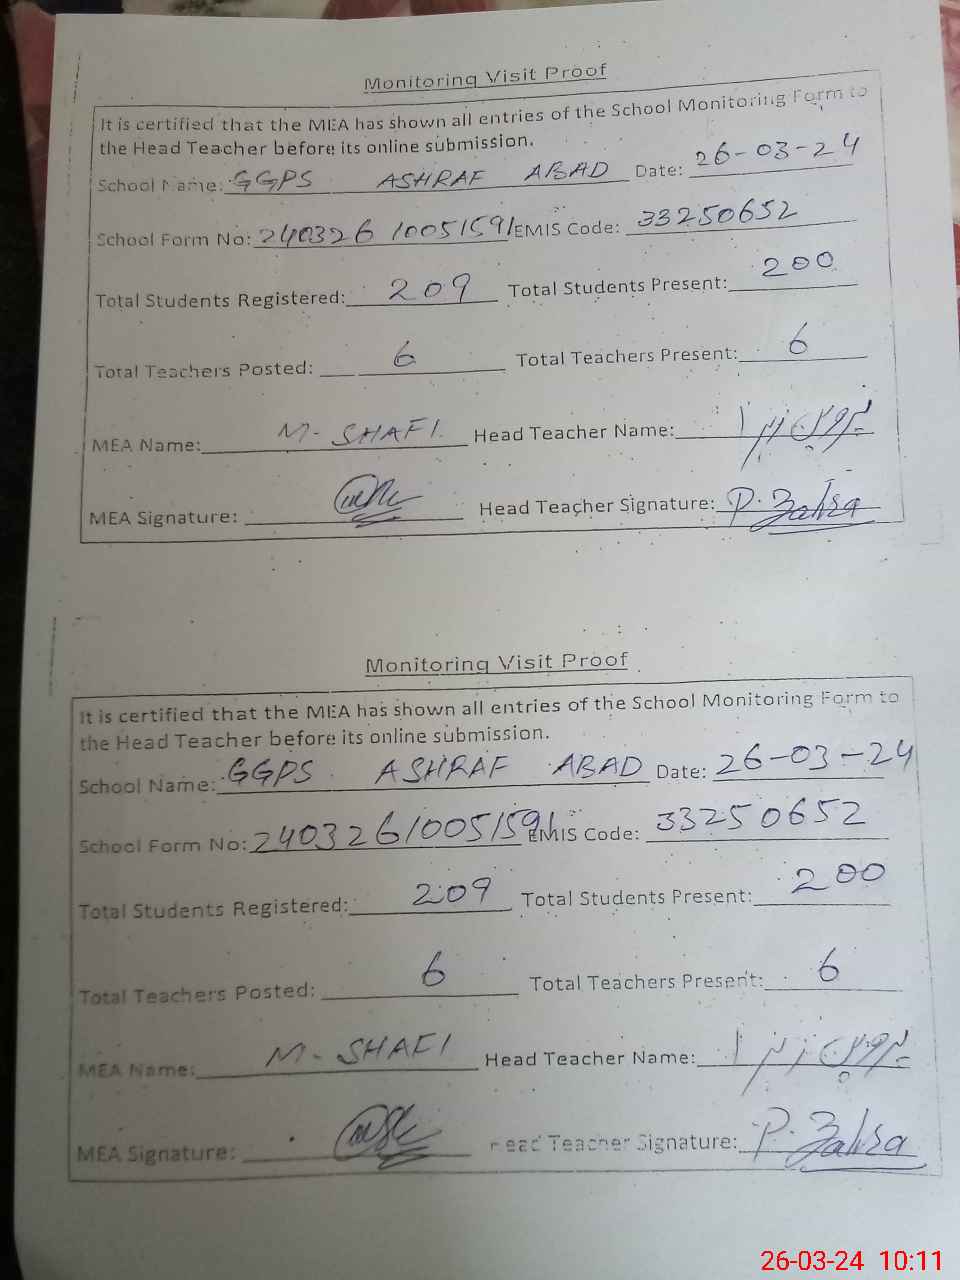 Monitoring Visit Proof
It is certified that the MEA has shown all entries of the School Monitoring Form to
the Head Teacher before its online submission.
School Name: GGPS ASHRAF ABAD Date: 26-03-24
School Form No: 240326 1005159 EMIS Code: 33250652
Total Students Registered: 209 Total Students Present: 200
Total Teachers Posted: 6 Total Teachers Present: 6
MEA Name: M- SHAFI. Head Teacher Name: پروین زہرا
MEA Signature: Head Teacher Signature: P. Zahra
Monitoring Visit Proof
It is certified that the MEA has shown all entries of the School Monitoring Form to
the Head Teacher before its online submission.
School Name: GGPS ASHRAF ABAD Date: 26-03-24
School Form No: 2403261005159 EMIS Code: 33250652
Total Students Registered: 209 Total Students Present: 200
Total Teachers Posted: 6 Total Teachers Present: 6
MEA Name: M- SHAFI Head Teacher Name: پروین زہرا
MEA Signature: Head Teacher Signature: P. Zahra
26-03-24 10:11